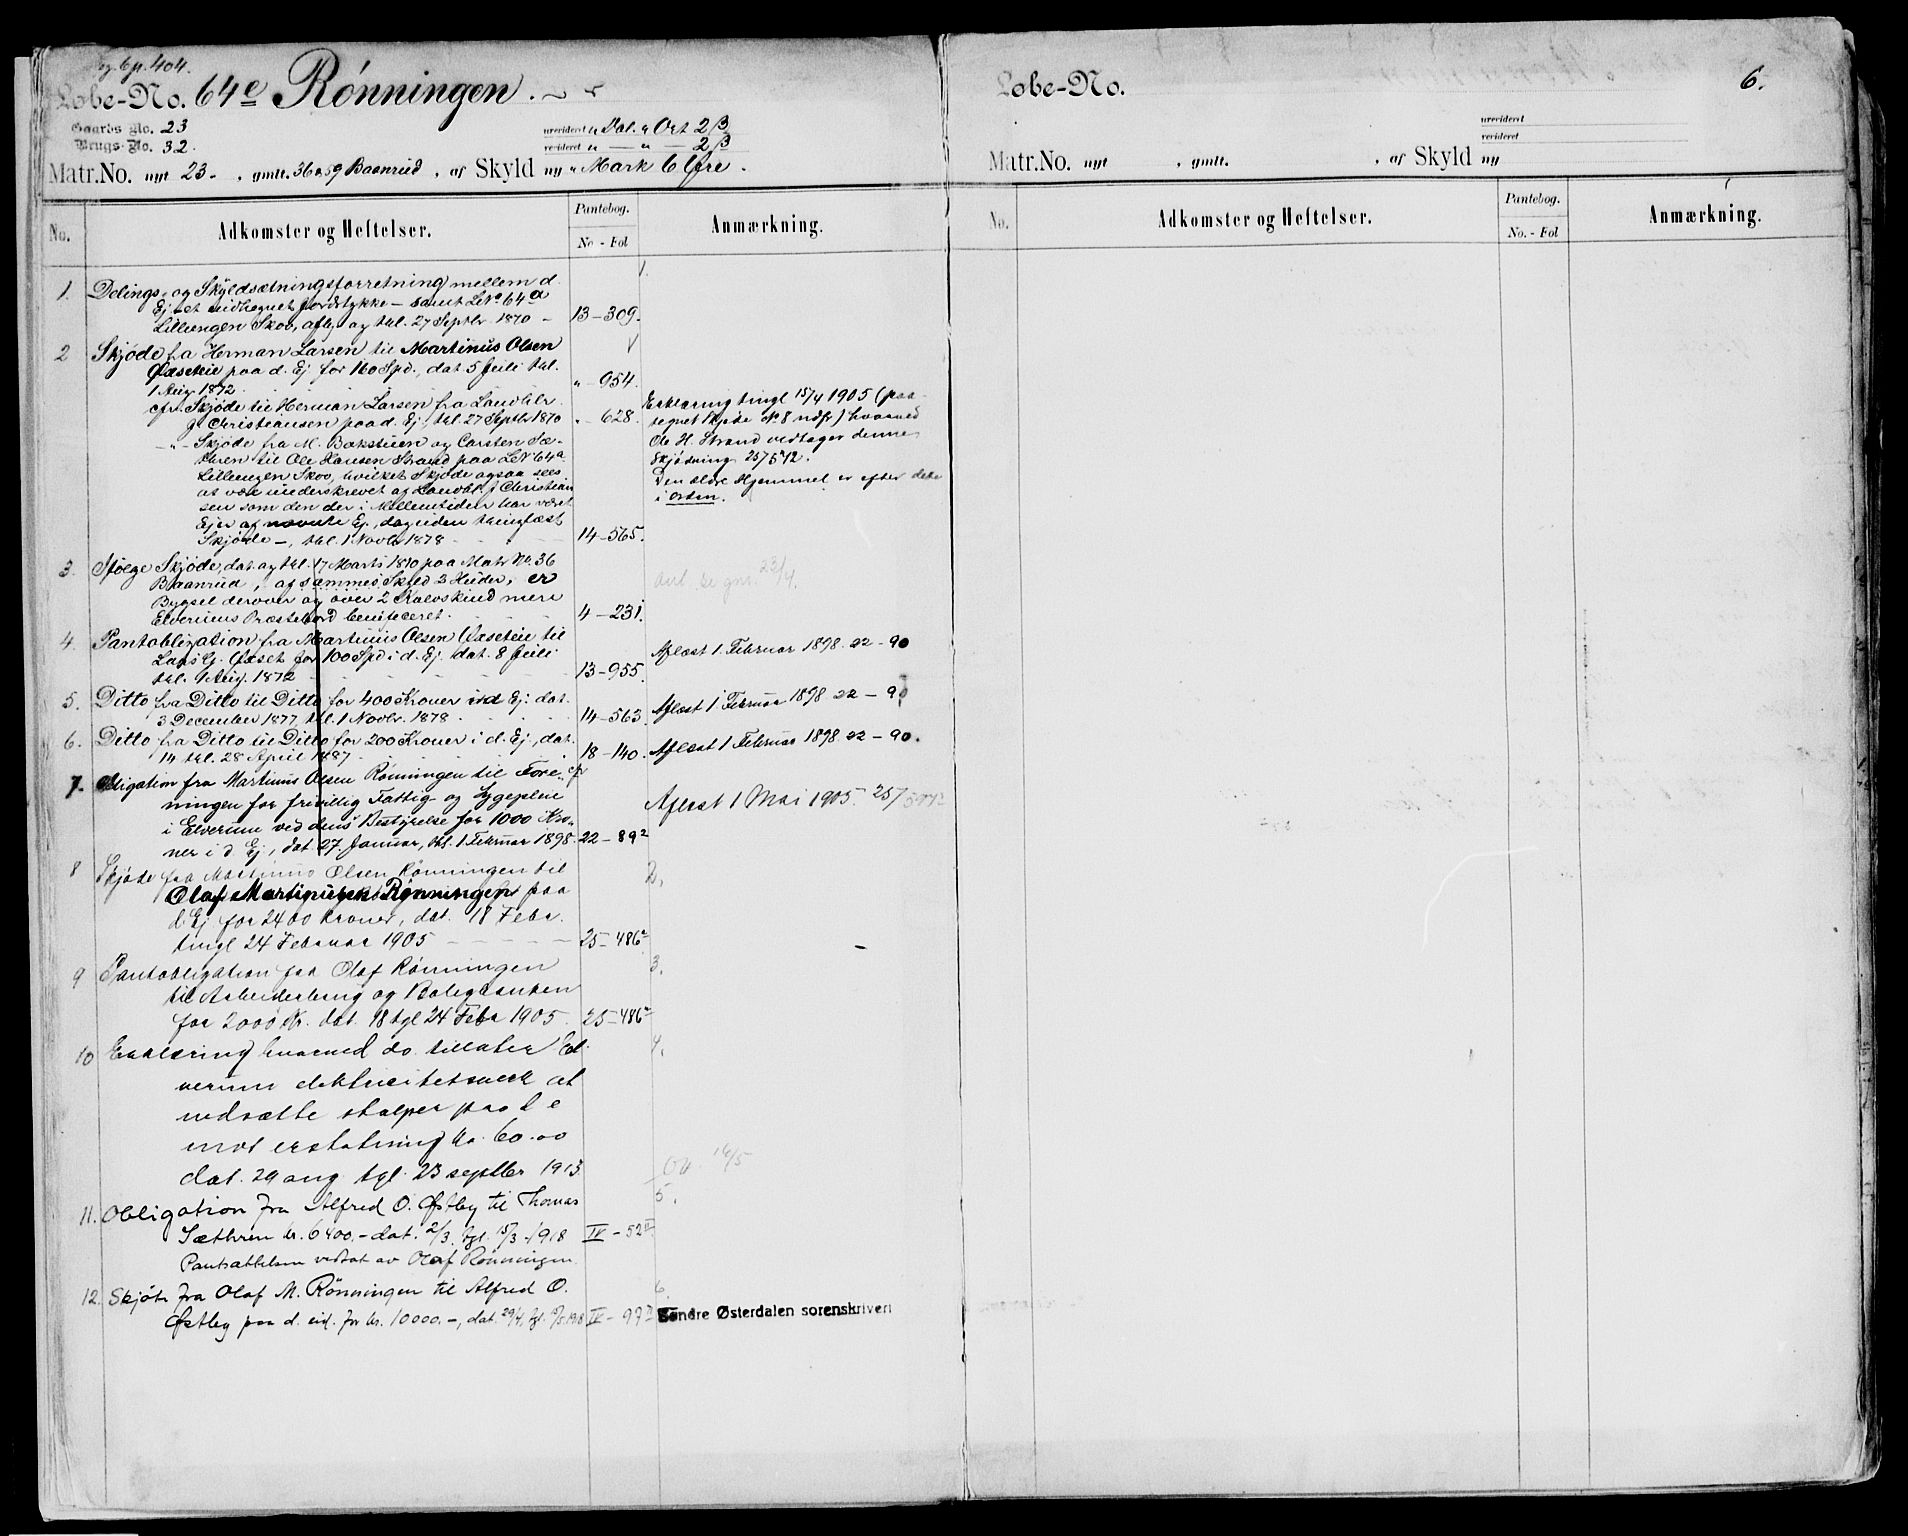 Reg. 6 p. 404.
Løbe-No. 64e Rønningen.
Gaards No. 23
Brugs-No. 32.
urevideret " Dal. " Ort 2 β
revideret " — " — 2 β
Matr.No. nyt 23. , gmlt. 36 a 59 Baanrud , af Skyld ny " Mark 6 Øre.
No.
Adkomster og Heftelser.
Pantebog.
No - Fol
Anmærkning.
1. Delings- og Skyldsætningsforretning mellem d.
Ej. et indhegnet Jordstykke — samt LNo 64a
Lillengen Skov, afh. og thl. 27 Septbr 1870 — 13-309. 1.
2 Skjøde fra Herman Larsen til Martinus Olsen
Øaseteie paa d. Ej for 160 Spd., dat 5 Juli thl.
1 Aug. 1872 " - 954.
cfr. Skjøde til Herman Larsen fra Landhdlr.
J. Christiansen paa d. Ej, thl. 27 Septbr 1870 " - 628.
— " — Skjøde fra M. Bækstuen og Carsten Sæ-
thren til Ole Hansen Strand paa LNo 64a
Lillengen Skov, hvilket Skjøde ogsaa sees
at være underskrevet af Landhdl. J Christian
sen som den der i Mellemtiden har været
Ejer af nævnte Ej., dog uden thinglæst
Skjøde —, thl. 1 Novbr 1878 14-565.
Erklæring tingl 15/4 1905 (paa-
tegnet Skjøte No 8 ndfr) hvorved
Ole H. Strand vedtager denne
Skjødning 25/542.
Den ældre Hjemmel er efter dette
i Orden.
3. Ifølge Skjøde, dat. og thl. 17 Marts 1810 paa Matr No. 36
Baanrud, af sammes Skyld 3 Huder, er
Bygsel derover og over 2 Kalvskind mere
Elverums Præstebord beneficeret. 4-231.
4. Pantobligation fra Martinus Olsen Øaseteie til
Lars G. Øaset for 100 Spd i d. Ej. dat. 8 Juli
thl. 1 Aug. 1872 13-955. Aflæst 1. Februar 1898. 22-90
5. Ditto fra Ditto til Ditto for 400 Kroner i d Ej. dat.
3 December 1877, thl. 1 Novbr. 1878 14-563. Aflæst 1 Februar 1898 22-90
6. Ditto fra Ditto til Ditto for 200 Kroner i d. Ej., dat.
14 thl. 28 April 1887 18-140. Aflæst 1 Februar 1898 22-90.
7. Obligation fra Martinus Olsen Rønningen til Fore-
ningen for frivillig Fattig- og Sygepleie
i Elverum ved dens Bestyrelse for 1000 Kro-
ner i d. Ej, dat. 27. Januar, thl. 1 Februar 1898. 22-89² Aflæst 1 Mai 1905. 25/542
8 Skjøte fra Martinus Olsen Rønningen til 2.
Olaf Martinusen Rønningen paa
d. Ej for 2400 kroner, dat. 18 Febr.
tingl 24 Februar 1905 25-486²
9 Pantobligation fra Olaf Rønningen 3.
til Arbeiderbrug og Boligbanken
for 2000 Kr. dat. 18 tgl 24 Febr 1905 25-486²
10 Erklæring hvorved do. tillater El- 4.
verum elektricitetsverk at
nedsætte stolper paa d e
mot erstatning kr. 60.00
dat. 29 aug tgl. 23 septber 1913
11. Obligation fra Alfred O. Østby til Thomas 5.
Sæthren kr. 6400.- dat. 2/3. tgl. 15/3-1918 IV-52II
Pantsættelsen vedtat av Olaf Rønningen.
12. Skjøte fra Olaf M. Rønningen til Alfred O. 6.
Østby paa d. eid. for kr. 10000.-, dat. 29/4, tgl. /5.1918 IV-99
Søndre Østerdalen sorenskriveri
Løbe-No. 6.
urevideret
revideret
Matr.No. nyt , gmlt. , af Skyld ny
No.
Adkomster og Heftelser.
Pantebog.
No. - Fol
Anmærkning.